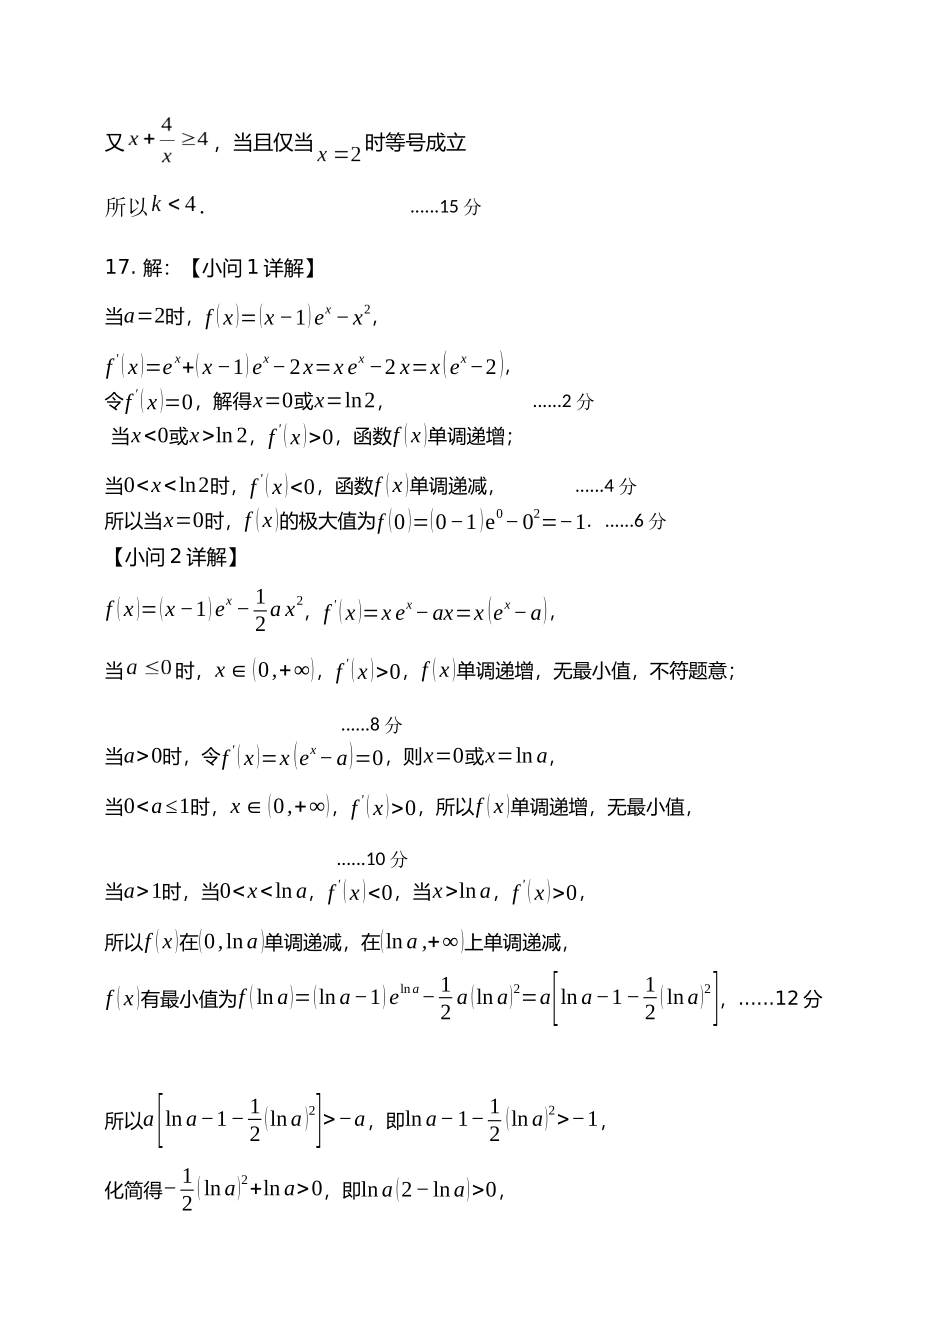 又 x + 4/x ≥4 ，当且仅当 x =2 时等号成立
所以 k < 4 . ......15 分
17. 解：【小问 1 详解】
当a=2时，f(x)=(x−1)e^x−x^2，
f′(x)=e^x+(x−1)e^x−2x=xe^x−2x=x(e^x−2)，
令f′(x)=0，解得x=0或x=ln2， ......2 分
当x<0或x>ln2，f′(x)>0，函数f(x)单调递增；
当0<x<ln2时，f′(x)<0，函数f(x)单调递减， ......4 分
所以当x=0时，f(x)的极大值为f(0)=(0−1)e^0−0^2=−1. ......6 分
【小问 2 详解】
f(x)=(x−1)e^x−1/2 ax^2，f′(x)=xe^x−ax=x(e^x−a)，
当 a ≤0 时，x∈(0,+∞)，f′(x)>0，f(x)单调递增，无最小值，不符题意；
......8 分
当a>0时，令f′(x)=x(e^x−a)=0，则x=0或x=ln a，
当0<a≤1时，x∈(0,+∞)，f′(x)>0，所以f(x)单调递增，无最小值，
......10 分
当a>1时，当0<x<ln a，f′(x)<0，当x>ln a，f′(x)>0，
所以f(x)在(0,ln a)单调递减，在(ln a,+∞)上单调递减，
f(x)有最小值为f(ln a)=(ln a−1)e^(ln a)−1/2 a(ln a)^2=a[ln a−1−1/2(ln a)^2]，......12 分
所以a[ln a−1−1/2(ln a)^2]>−a，即ln a−1−1/2(ln a)^2>−1，
化简得−1/2(ln a)^2+ln a>0，即ln a(2−ln a)>0，